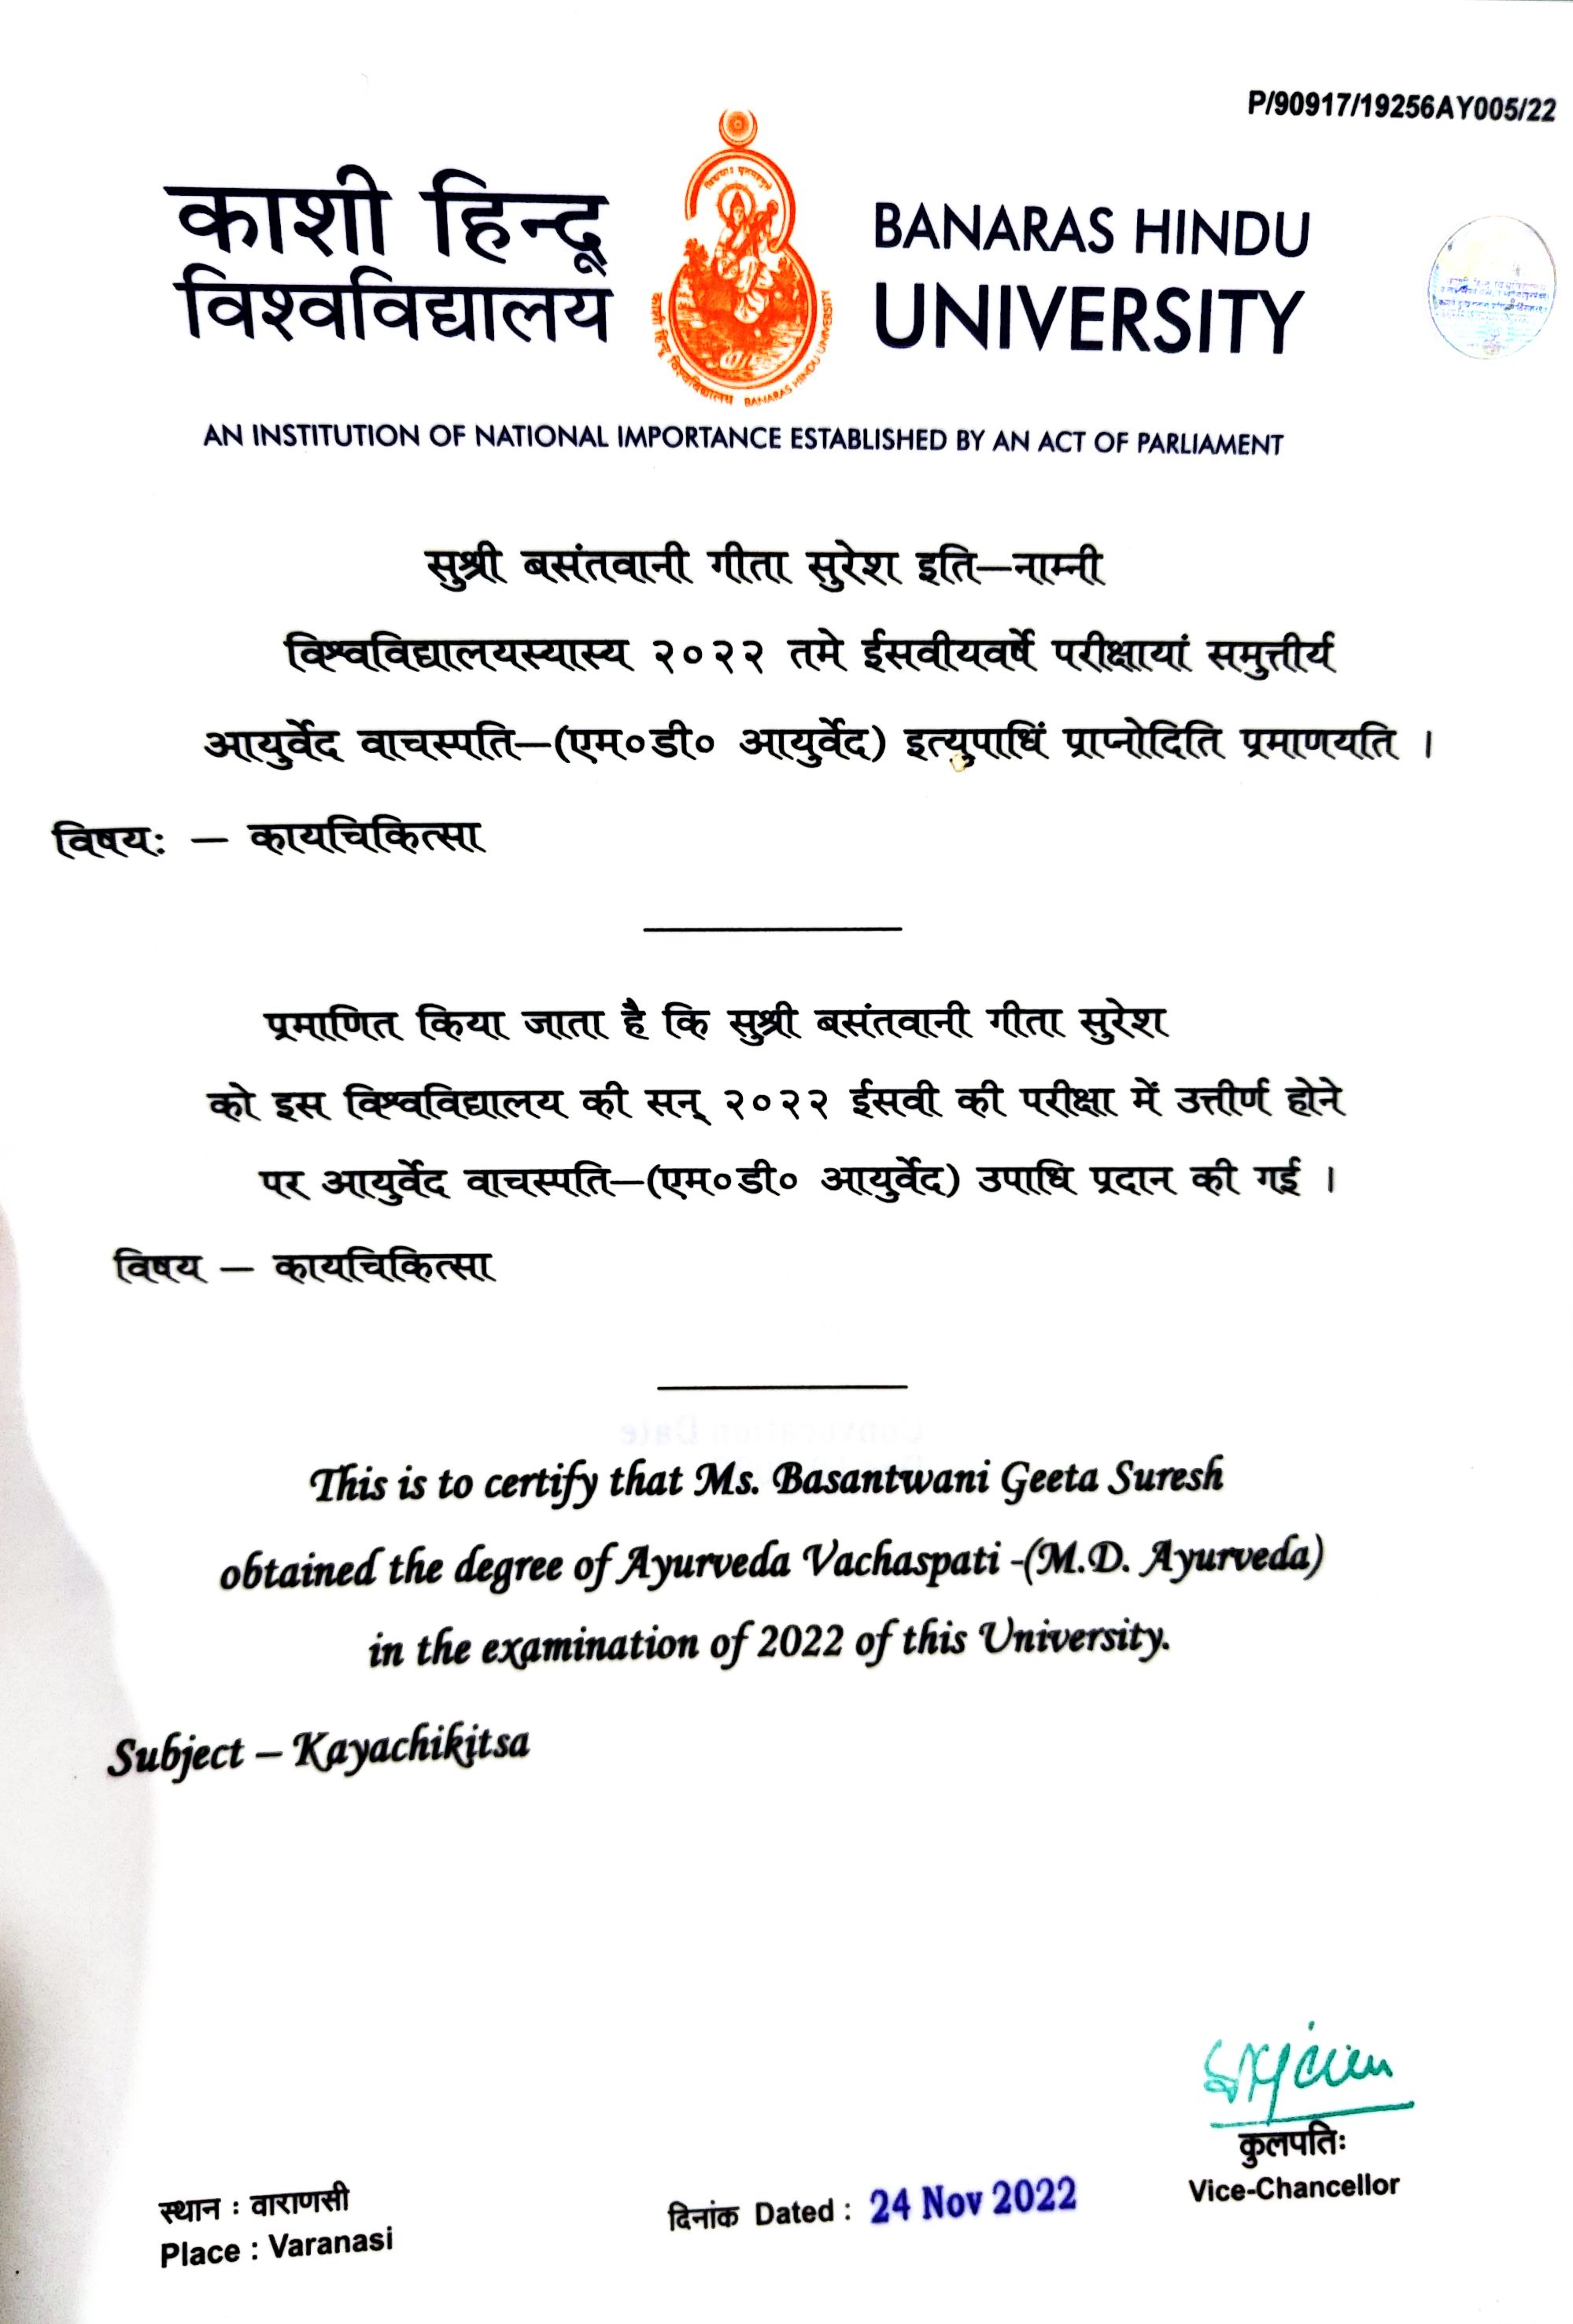 P/90917/19256AY005/22
काशी हिन्दू
विश्वविद्यालय
BANARAS HINDU
UNIVERSITY
काशी हिन्दू विश्वविद्यालय BANARAS HINDU UNIVERSITY
AN INSTITUTION OF NATIONAL IMPORTANCE ESTABLISHED BY AN ACT OF PARLIAMENT
सुश्री बसंतवानी गीता सुरेश इति—नाम्नी
विश्वविद्यालयस्यास्य २०२२ तमे ईसवीयवर्षे परीक्षायां समुत्तीर्य
आयुर्वेद वाचस्पति—(एम०डी० आयुर्वेद) इत्युपाधिं प्राप्नोदिति प्रमाणयति ।
विषयः — कायचिकित्सा
प्रमाणित किया जाता है कि सुश्री बसंतवानी गीता सुरेश
को इस विश्वविद्यालय की सन् २०२२ ईसवी की परीक्षा में उत्तीर्ण होने
पर आयुर्वेद वाचस्पति—(एम०डी० आयुर्वेद) उपाधि प्रदान की गई ।
विषय — कायचिकित्सा
This is to certify that Ms. Basantwani Geeta Suresh
obtained the degree of Ayurveda Vachaspati -(M.D. Ayurveda)
in the examination of 2022 of this University.
Subject – Kayachikitsa
कुलपतिः
Vice-Chancellor
स्थान : वाराणसी
Place : Varanasi
दिनांक Dated : 24 Nov 2022